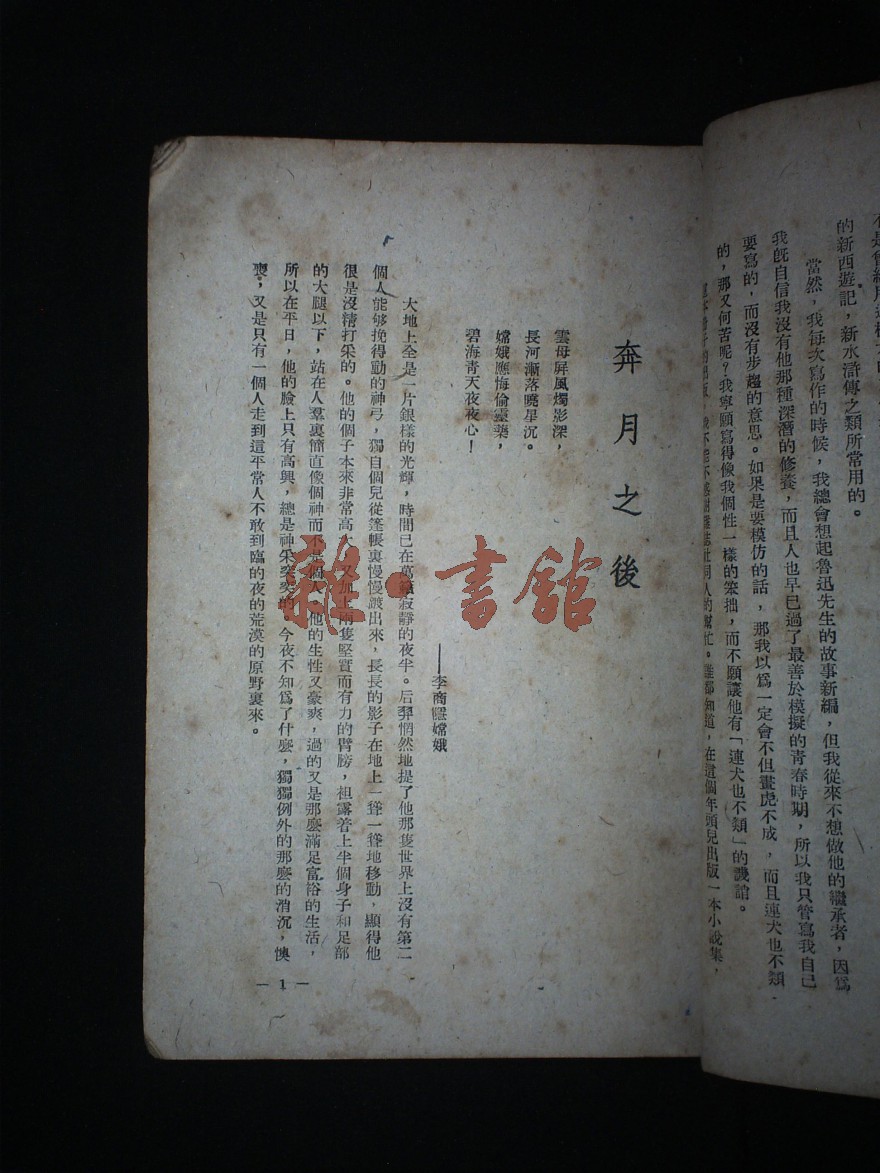 的新西遊記，新水滸傳之類所常用的。
當然，我每次寫作的時候，我總會想起魯迅先生的故事新編，但我從來不想做他的繼承者，因爲
我旣自信我沒有他那種深潛的修養，而且人也早已過了最善於模擬的青春時期，所以我只管寫我自己
要寫的，而沒有步趨的意思。如果是要模仿的話，那我以爲一定會不但畫虎不成，而且連犬也不類
的，那又何苦呢？我寧願寫得像我個性一樣的笨拙，而不願讓他有「連犬也不類」的譏誚。
出版，我不能不感謝雜誌社同人的幫忙。誰都知道，在這個年頭兒出版一本小說集，
奔月之後
雲母屏風燭影深，
長河漸落曉星沉。
嫦娥應悔偷靈藥，
碧海青天夜夜心！
——李商隱嫦娥
大地上全是一片銀樣的光輝，時間已在萬籟寂靜的夜半。后羿惘然地提了他那隻世界上沒有第二
個人能够挽得動的神弓，獨自個兒從篷帳裏慢慢踱出來，長長的影子在地上一聳一聳地移動，顯得他
很是沒精打采的。他的個子本來非常高大，又加上兩隻堅實而有力的臂膀，袒露着上半個身子和足部
的大腿以下，站在人羣裏簡直像個神而不是個人，他的生性又豪爽，過的又是那麽滿足富裕的生活，
所以在平日，他的臉上只有高興，總是神采奕奕的，今夜不知爲了什麽，獨獨例外的那麽的消沉，懊
喪，又是只有一個人走到這平常人不敢到臨的夜的荒漠的原野裏來。
— 1 —
雜·書館